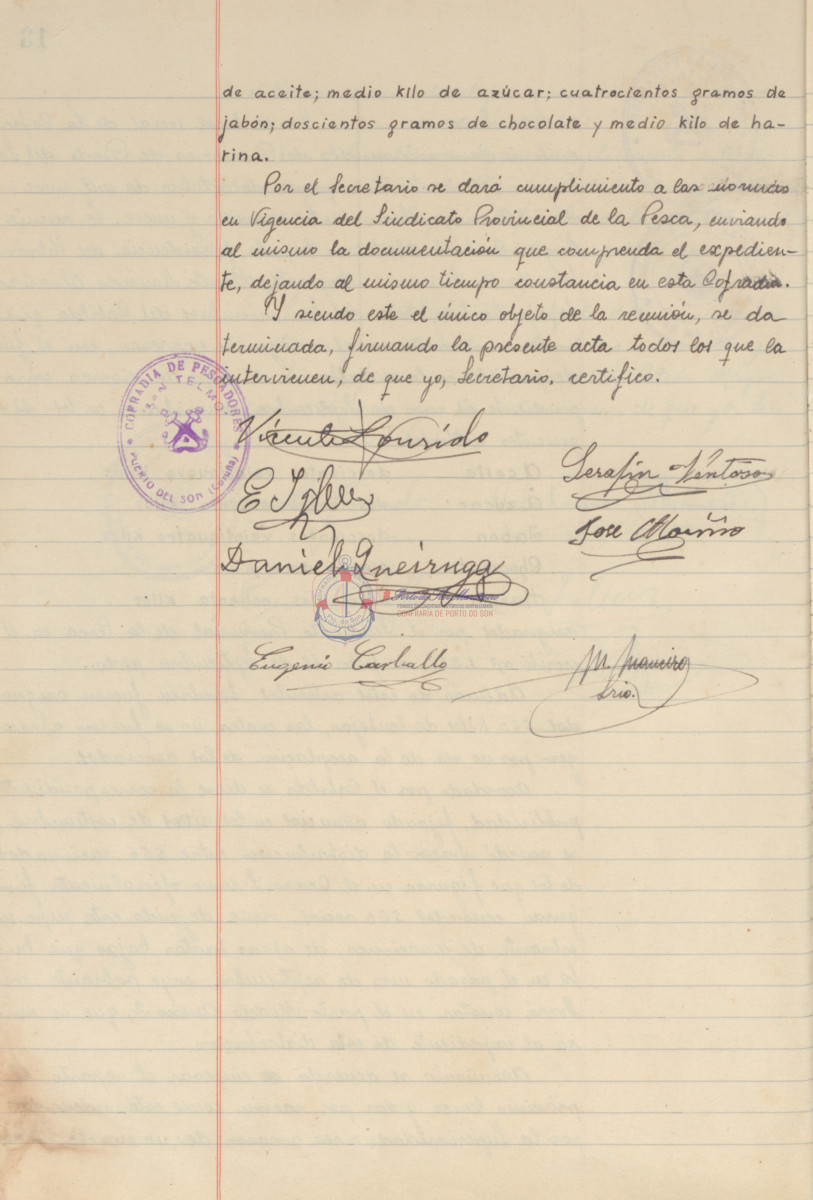 de aceite; medio kilo de azúcar; cuatrocientos gramos de
jabón; doscientos gramos de chocolate y medio kilo de ha-
rina.
Por el Secretario se dará cumplimiento a las normas
en Vigencia del Sindicato Provincial de la Pesca, enviando
al mismo la documentación que comprenda el expedien-
te, dejando al mismo tiempo constancia en esta Cofradía.
Y siendo este el único objeto de la reunión, se da
terminada, firmando la presente acta todos los que la
intervienen, de que yo, Secretario, certifico.
COFRADIA DE PESCADORES
"SAN TELMO"
PUERTO DEL SON (Coruña)
Vicente Lourido
Serafín Ventoso
E
Jose Mariño
Daniel Queiruga
CONFRARÍA DE PORTO DO SON
Eugenio Carballo
M. Maneiro
Srio.